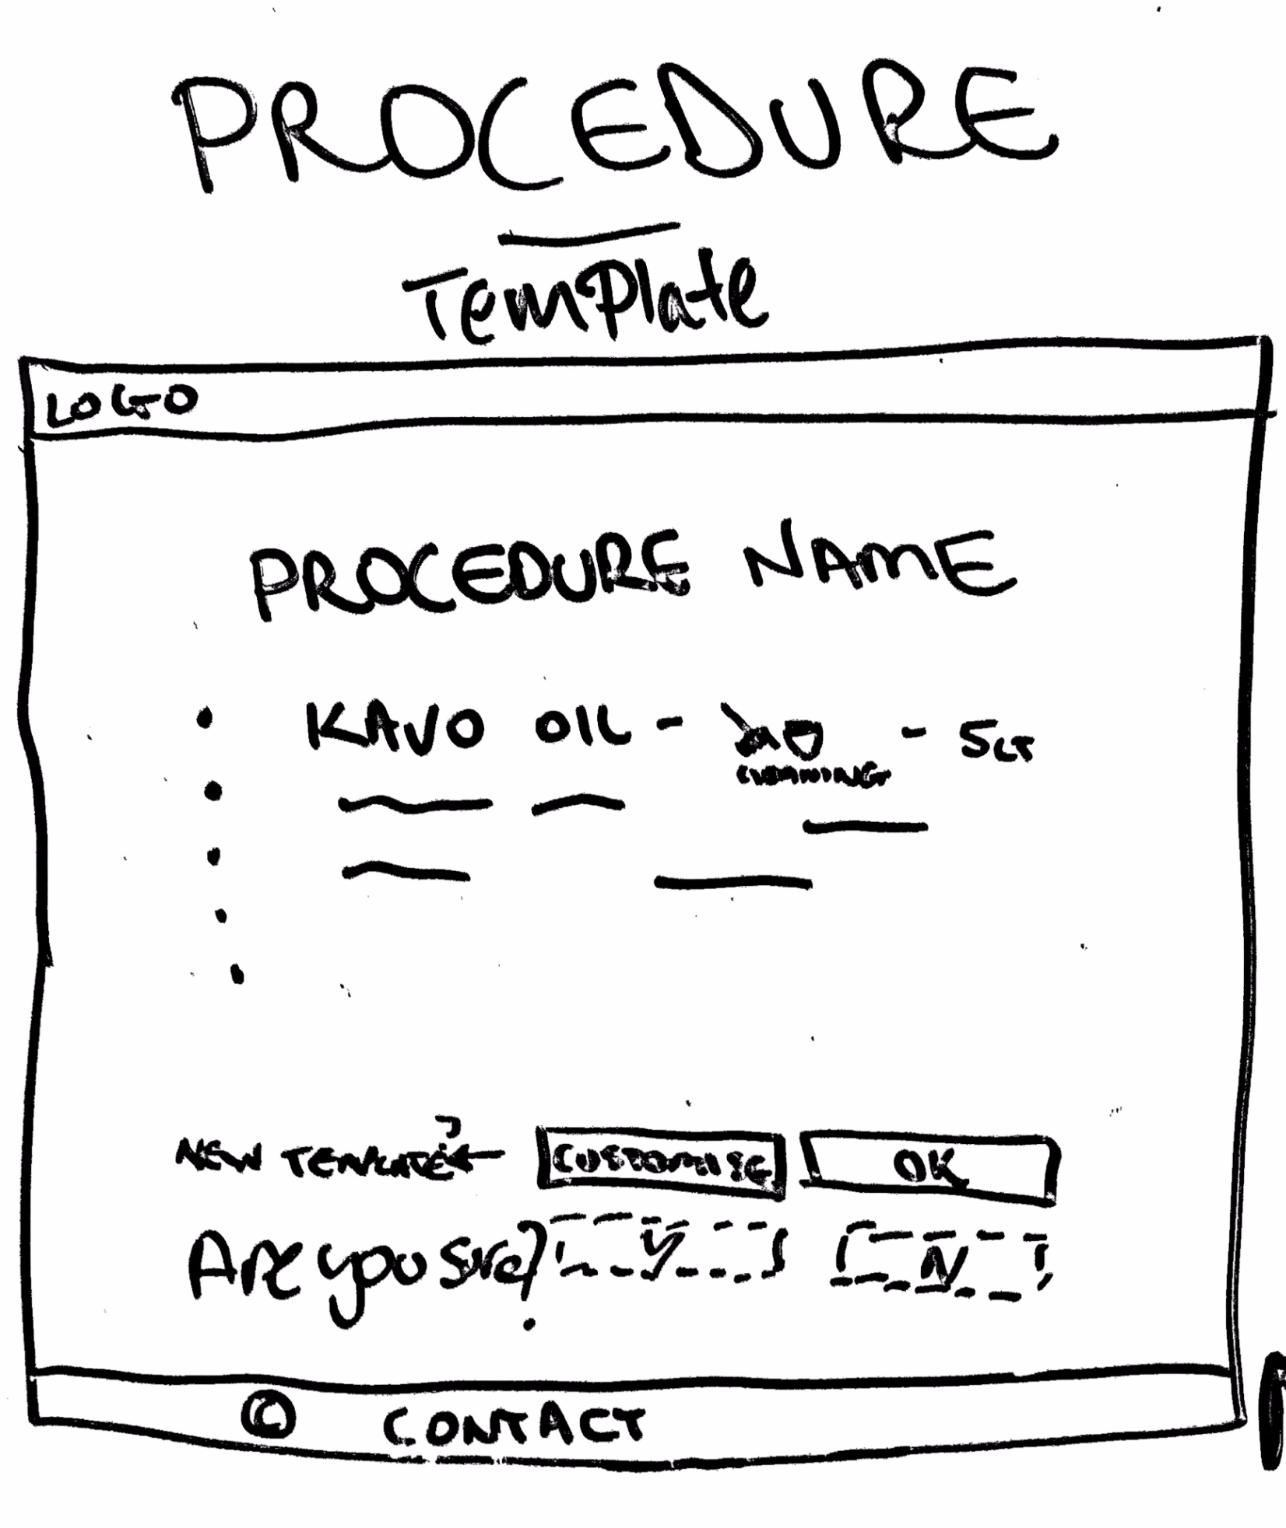 PROCEDURE
Template
LOGO
PROCEDURE NAME
• KAVO OIL - - 5LT
CLEANING
NEW TEMPLATE? ← CUSTOMISE OK
Are you sure? Y N
© CONTACT